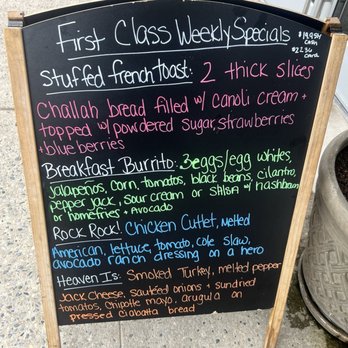 First Class Weekly Specials
$19.95+
cash
$22.36
card
Stuffed french toast: 2 thick slices
Challah bread filled w/ canoli cream +
topped w/ powdered sugar, strawberries
+ blueberries
Breakfast Burrito: 3 eggs/egg whites,
jalapeños, corn, tomatos, black beans, cilantro,
pepper jack, sour cream or salsa w/ hashbrown
or homefries + avocado
Rock Rock! Chicken Cutlet, melted
American, lettuce, tomato, cole slaw,
avocado ranch dressing on a hero
Heaven Is: Smoked Turkey, melted pepper
Jack cheese, sautéed onions + sundried
tomatos, Chipotle mayo, arugula on
pressed ciabatta bread